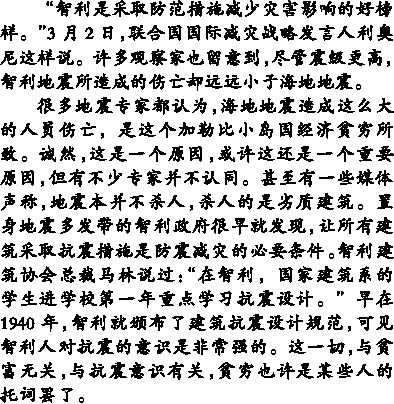 “智利是采取防范措施减少灾害影响的好榜
样。”3 月 2 日,联合国国际减灾战略发言人利奥
尼这样说。许多观察家也留意到,尽管震级更高,
智利地震所造成的伤亡却远远小于海地地震。
很多地震专家都认为,海地地震造成这么大
的人员伤亡，是这个加勒比小岛国经济贫穷所
致。诚然,这是一个原因,或许这还是一个重要
原因,但有不少专家并不认同。甚至有一些媒体
声称,地震本并不杀人,杀人的是劣质建筑。置
身地震多发带的智利政府很早就发现,让所有建
筑采取抗震措施是防震减灾的必要条件。智利建
筑协会总裁马林说过:“在智利，国家建筑系的
学生进学校第一年重点学习抗震设计。” 早在
1940 年,智利就颁布了建筑抗震设计规范,可见
智利人对抗震的意识是非常强的。这一切,与贫
富无关,与抗震意识有关,贫穷也许是某些人的
托词罢了。